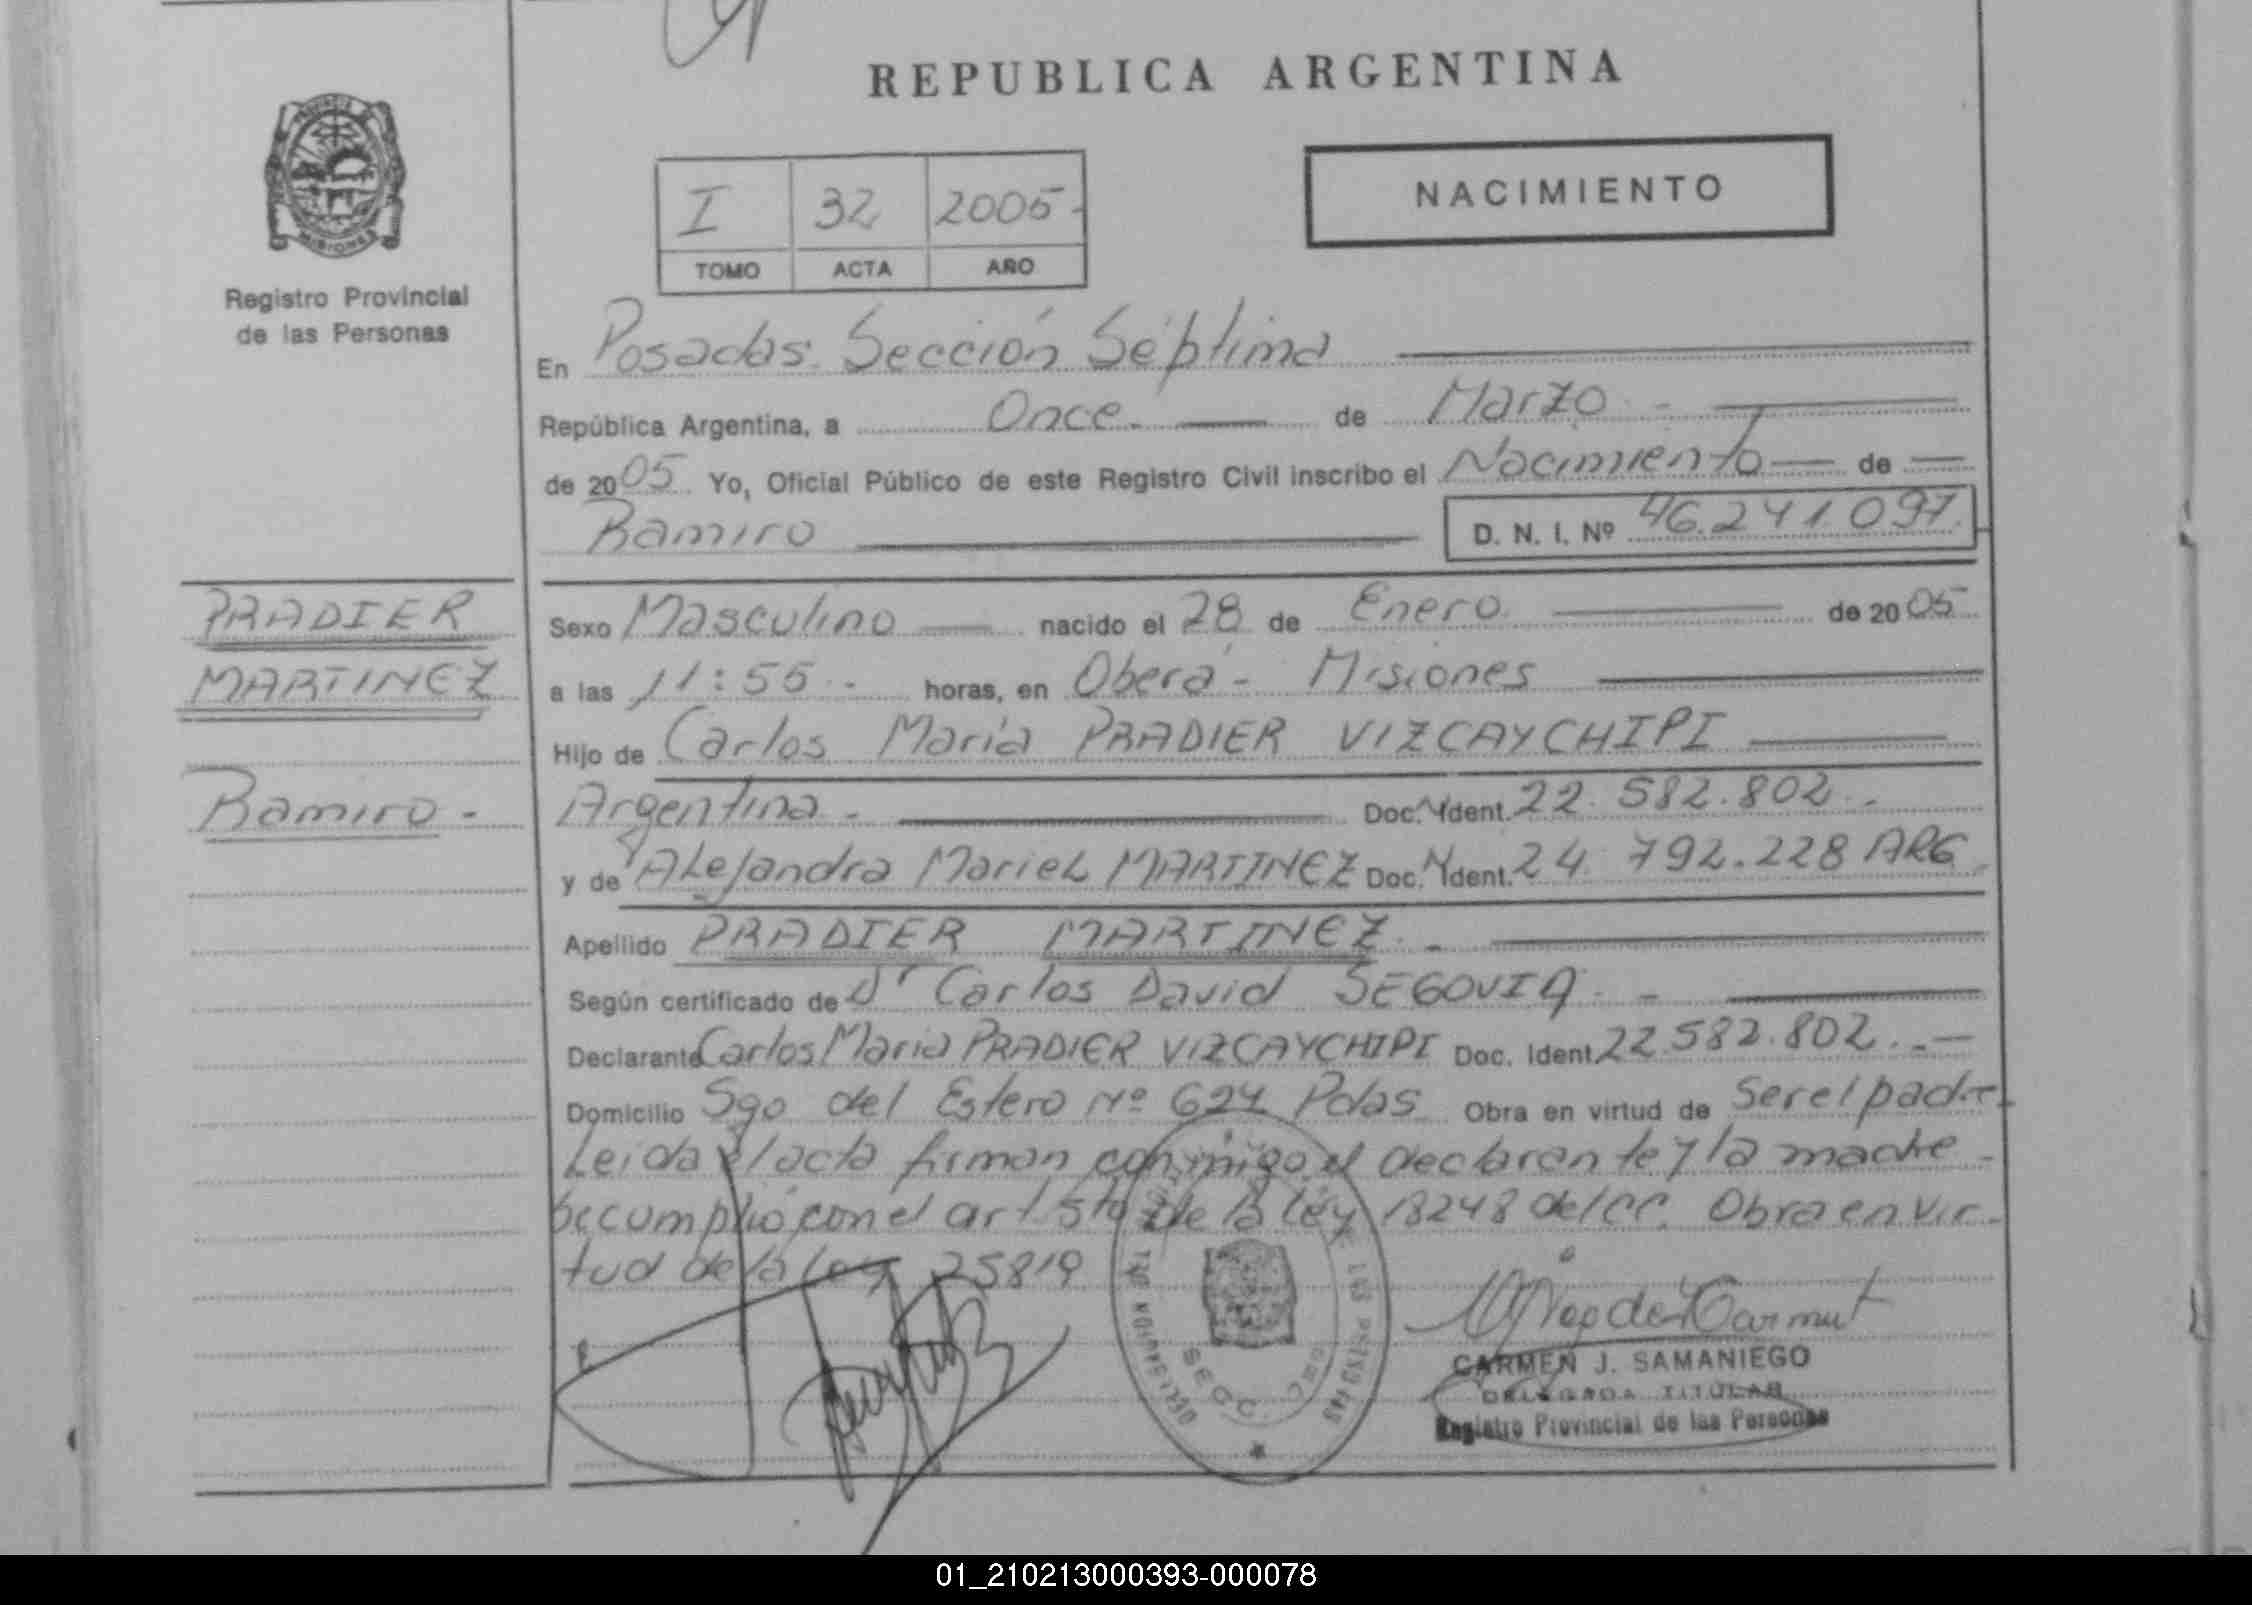 REPUBLICA ARGENTINA
PROVINCIA DE
MISIONES
Registro Provincial
de las Personas
I 32 2005-
TOMO ACTA AÑO
NACIMIENTO
En Posadas. Sección Séptima
República Argentina, a Once. de Marzo -
de 2005 Yo, Oficial Público de este Registro Civil inscribo el Nacimiento de
Ramiro D. N. I. Nº 46.241.097.
PRADIER
MARTINEZ
Ramiro -
Sexo Masculino nacido el 28 de Enero. de 2005
a las 11:55 - horas, en Oberá - Misiones
Hijo de Carlos María PRADIER VIZCAYCHIPI
Argentina - Doc. N Ident. 22.582.802. -
y de ALejandra MarieL MARTINEZ Doc. N Ident. 24.792.228 ARG.
Apellido PRADIER MARTINEZ. -
Según certificado de Dr Carlos David SEGOVIA. -
Declarante Carlos María PRADIER VIZCAYCHIPI Doc. Ident. 22.582.802. -
Domicilio Sgo del Estero Nº 624 Pdas Obra en virtud de Ser el padre
Leida el acta firman conmigo el declarante y la madre -
Se cumplió con el art 5to de la ley 18248 del CC. Obra en vir-
tud de la Ley 25819
CARMEN J. SAMANIEGO
DELEGADA TITULAR
Registro Provincial de las Personas
SECC.
01_210213000393-000078